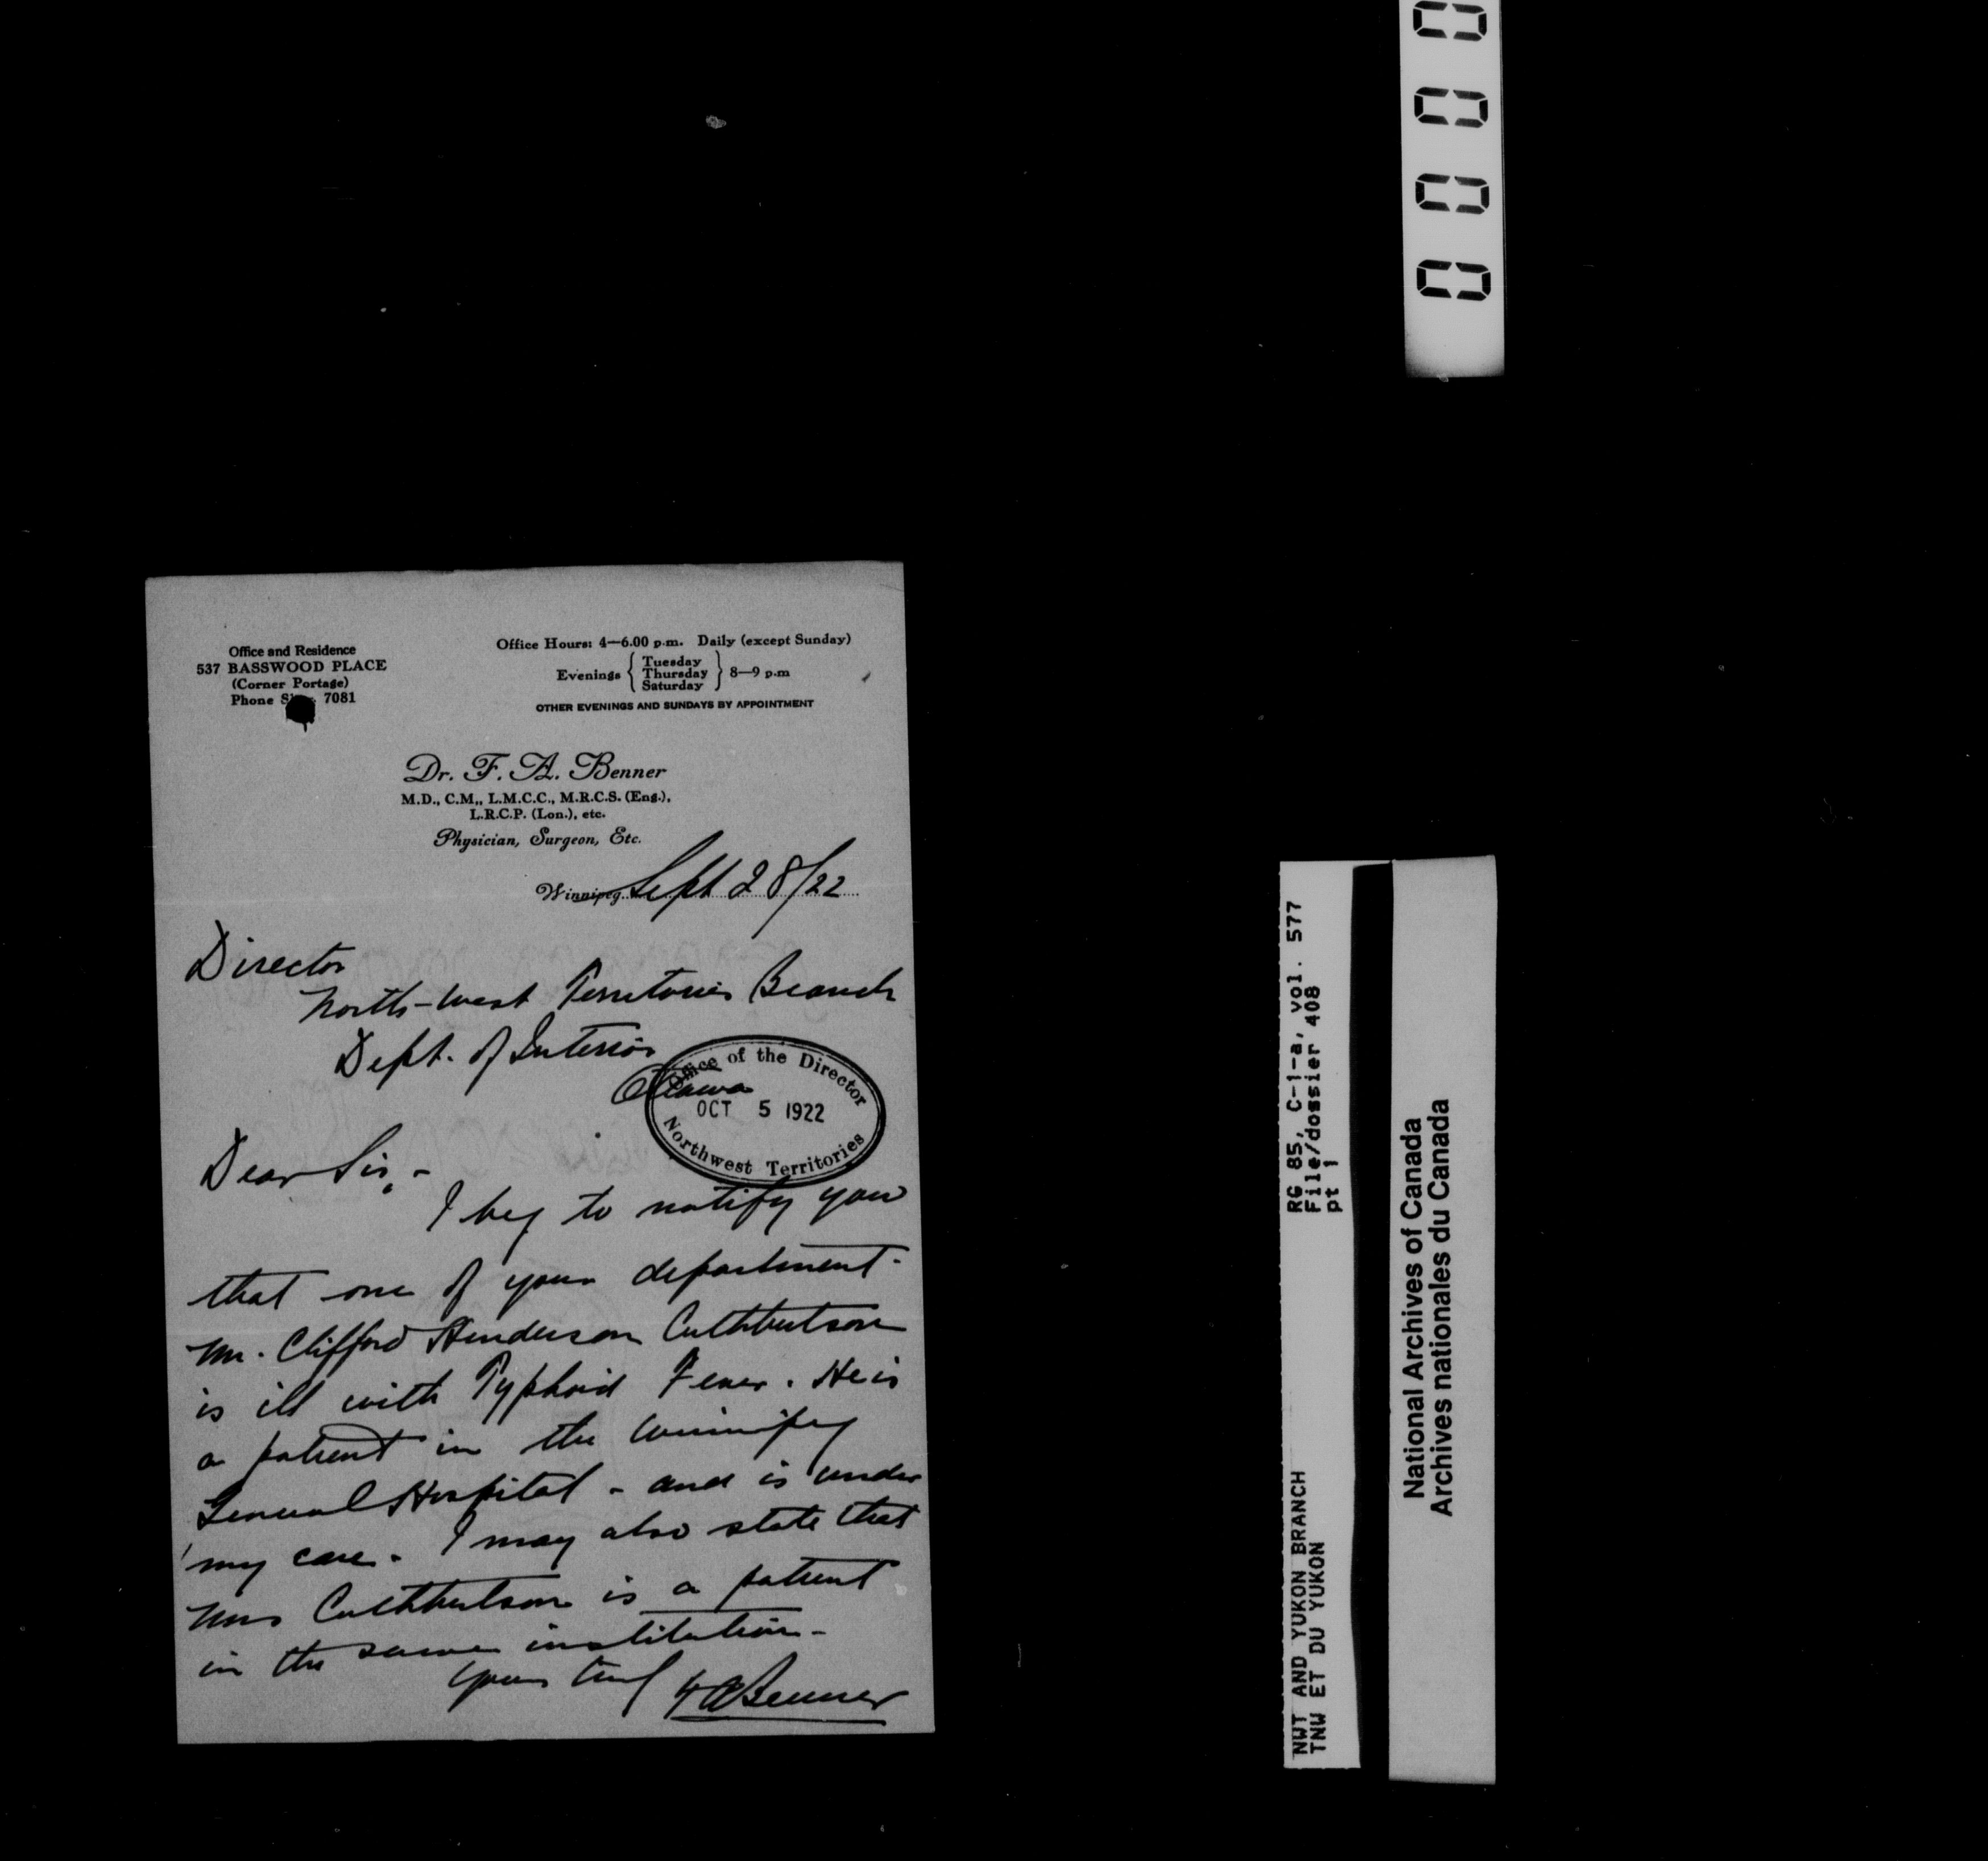 Office and Residence
537 BASSWOOD PLACE
(Corner Portage)
Phone 7081
Office Hours: 4—6.00 p.m. Daily (except Sunday)
Evenings { Tuesday Thursday Saturday } 8—9 p.m
OTHER EVENINGS AND SUNDAYS BY APPOINTMENT
Dr. F. A. Benner
M.D., C.M., L.M.C.C., M.R.C.S. (Eng.),
L.R.C.P. (Lon.), etc.
Physician, Surgeon, Etc.
Winnipeg Sept 28/22
Director
North-West Territories Branch
Dept. of Interior
Ottawa
Office of the Director
OCT 5 1922
Northwest Territories
Dear Sir,-
I beg to notify you
that one of your department-
Mr. Clifford Henderson Cuthbertson
is ill with Typhoid Fever. He is
a patient in the Winnipeg
General Hospital - and is under
my care. I may also state that
Mrs Cuthbertson is a patient
in the same institution-
Yours truly FABenner
0000
RG 85, C-1-a, vol. 577
File/dossier 408
pt 1
NWT AND YUKON BRANCH
TNW ET DU YUKON
National Archives of Canada
Archives nationales du Canada